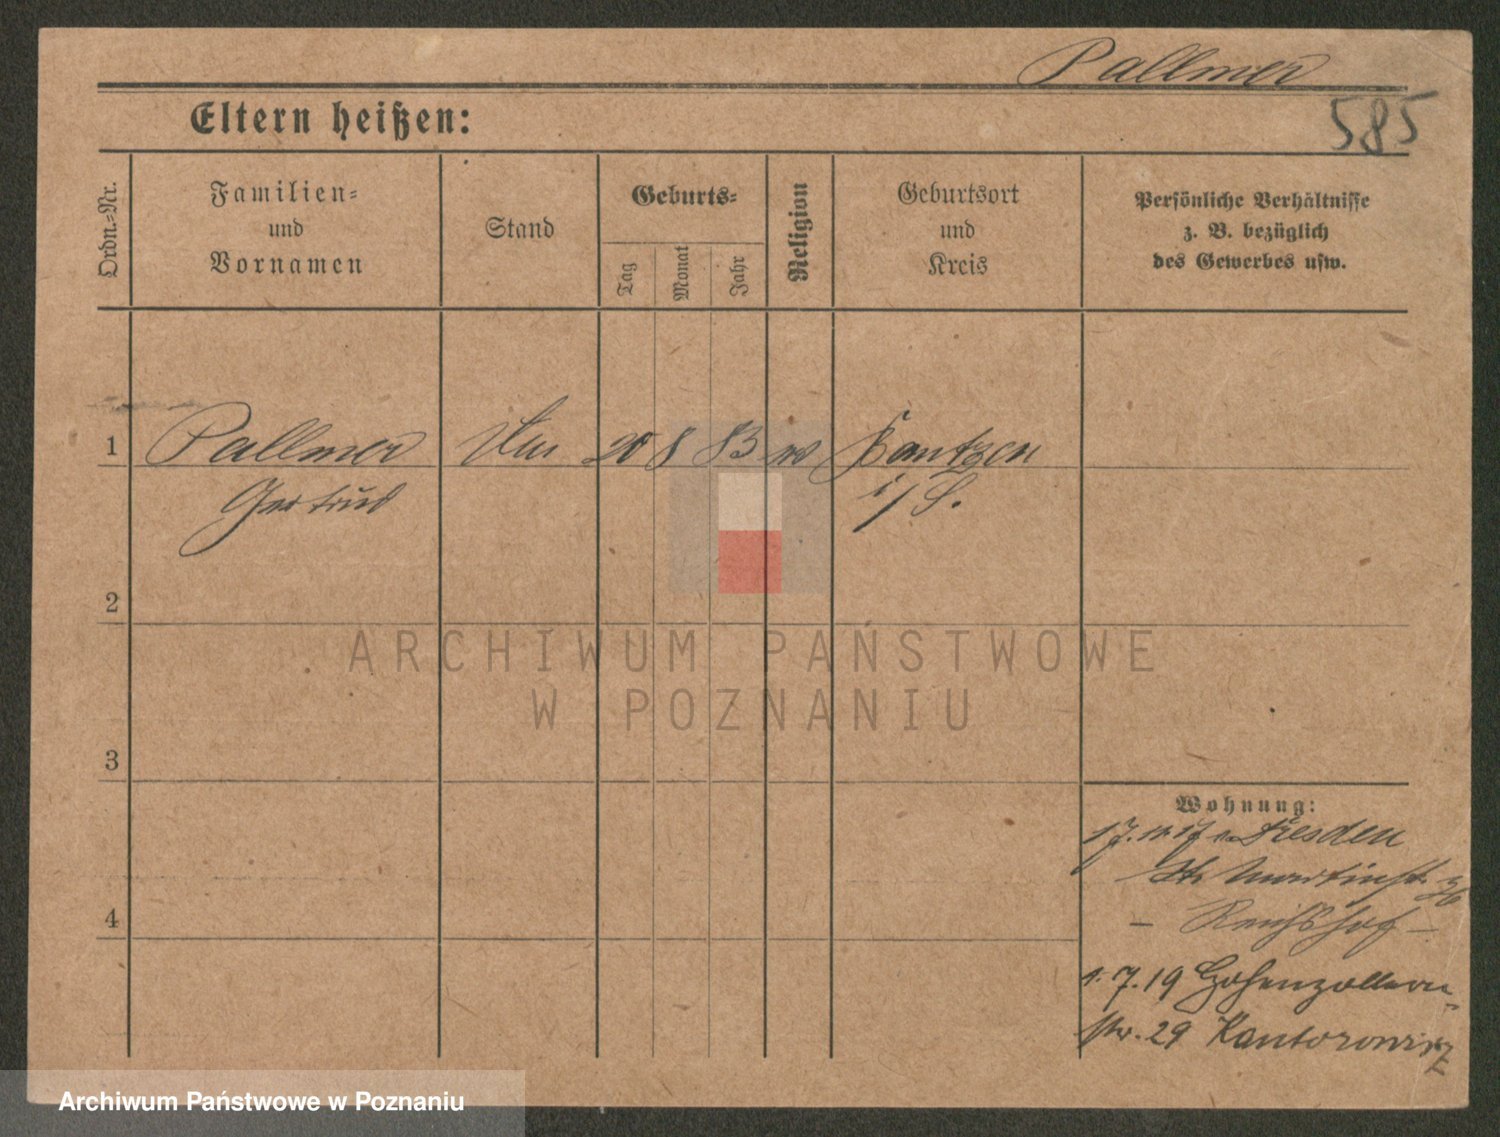 Pallmer
585
Eltern heißen:
Ordn.-Nr.
Familien-
und
Vornamen
Stand
Geburts-
Tag
Monat
Jahr
Religion
Geburtsort
und
Kreis
Persönliche Verhältnisse
z. B. bezüglich
des Gewerbes usw.
1
Pallmer
20 8 83
Bautzen
Gertrud
i/S.
2
ARCHIWUM PAŃSTWOWE
W POZNANIU
3
Wohnung:
17.11.17 Dresden
St. Martinstr. 36
– Reichshof –
4
1.7.19 Hohenzollern-
str. 29 Kantorowicz
Archiwum Państwowe w Poznaniu